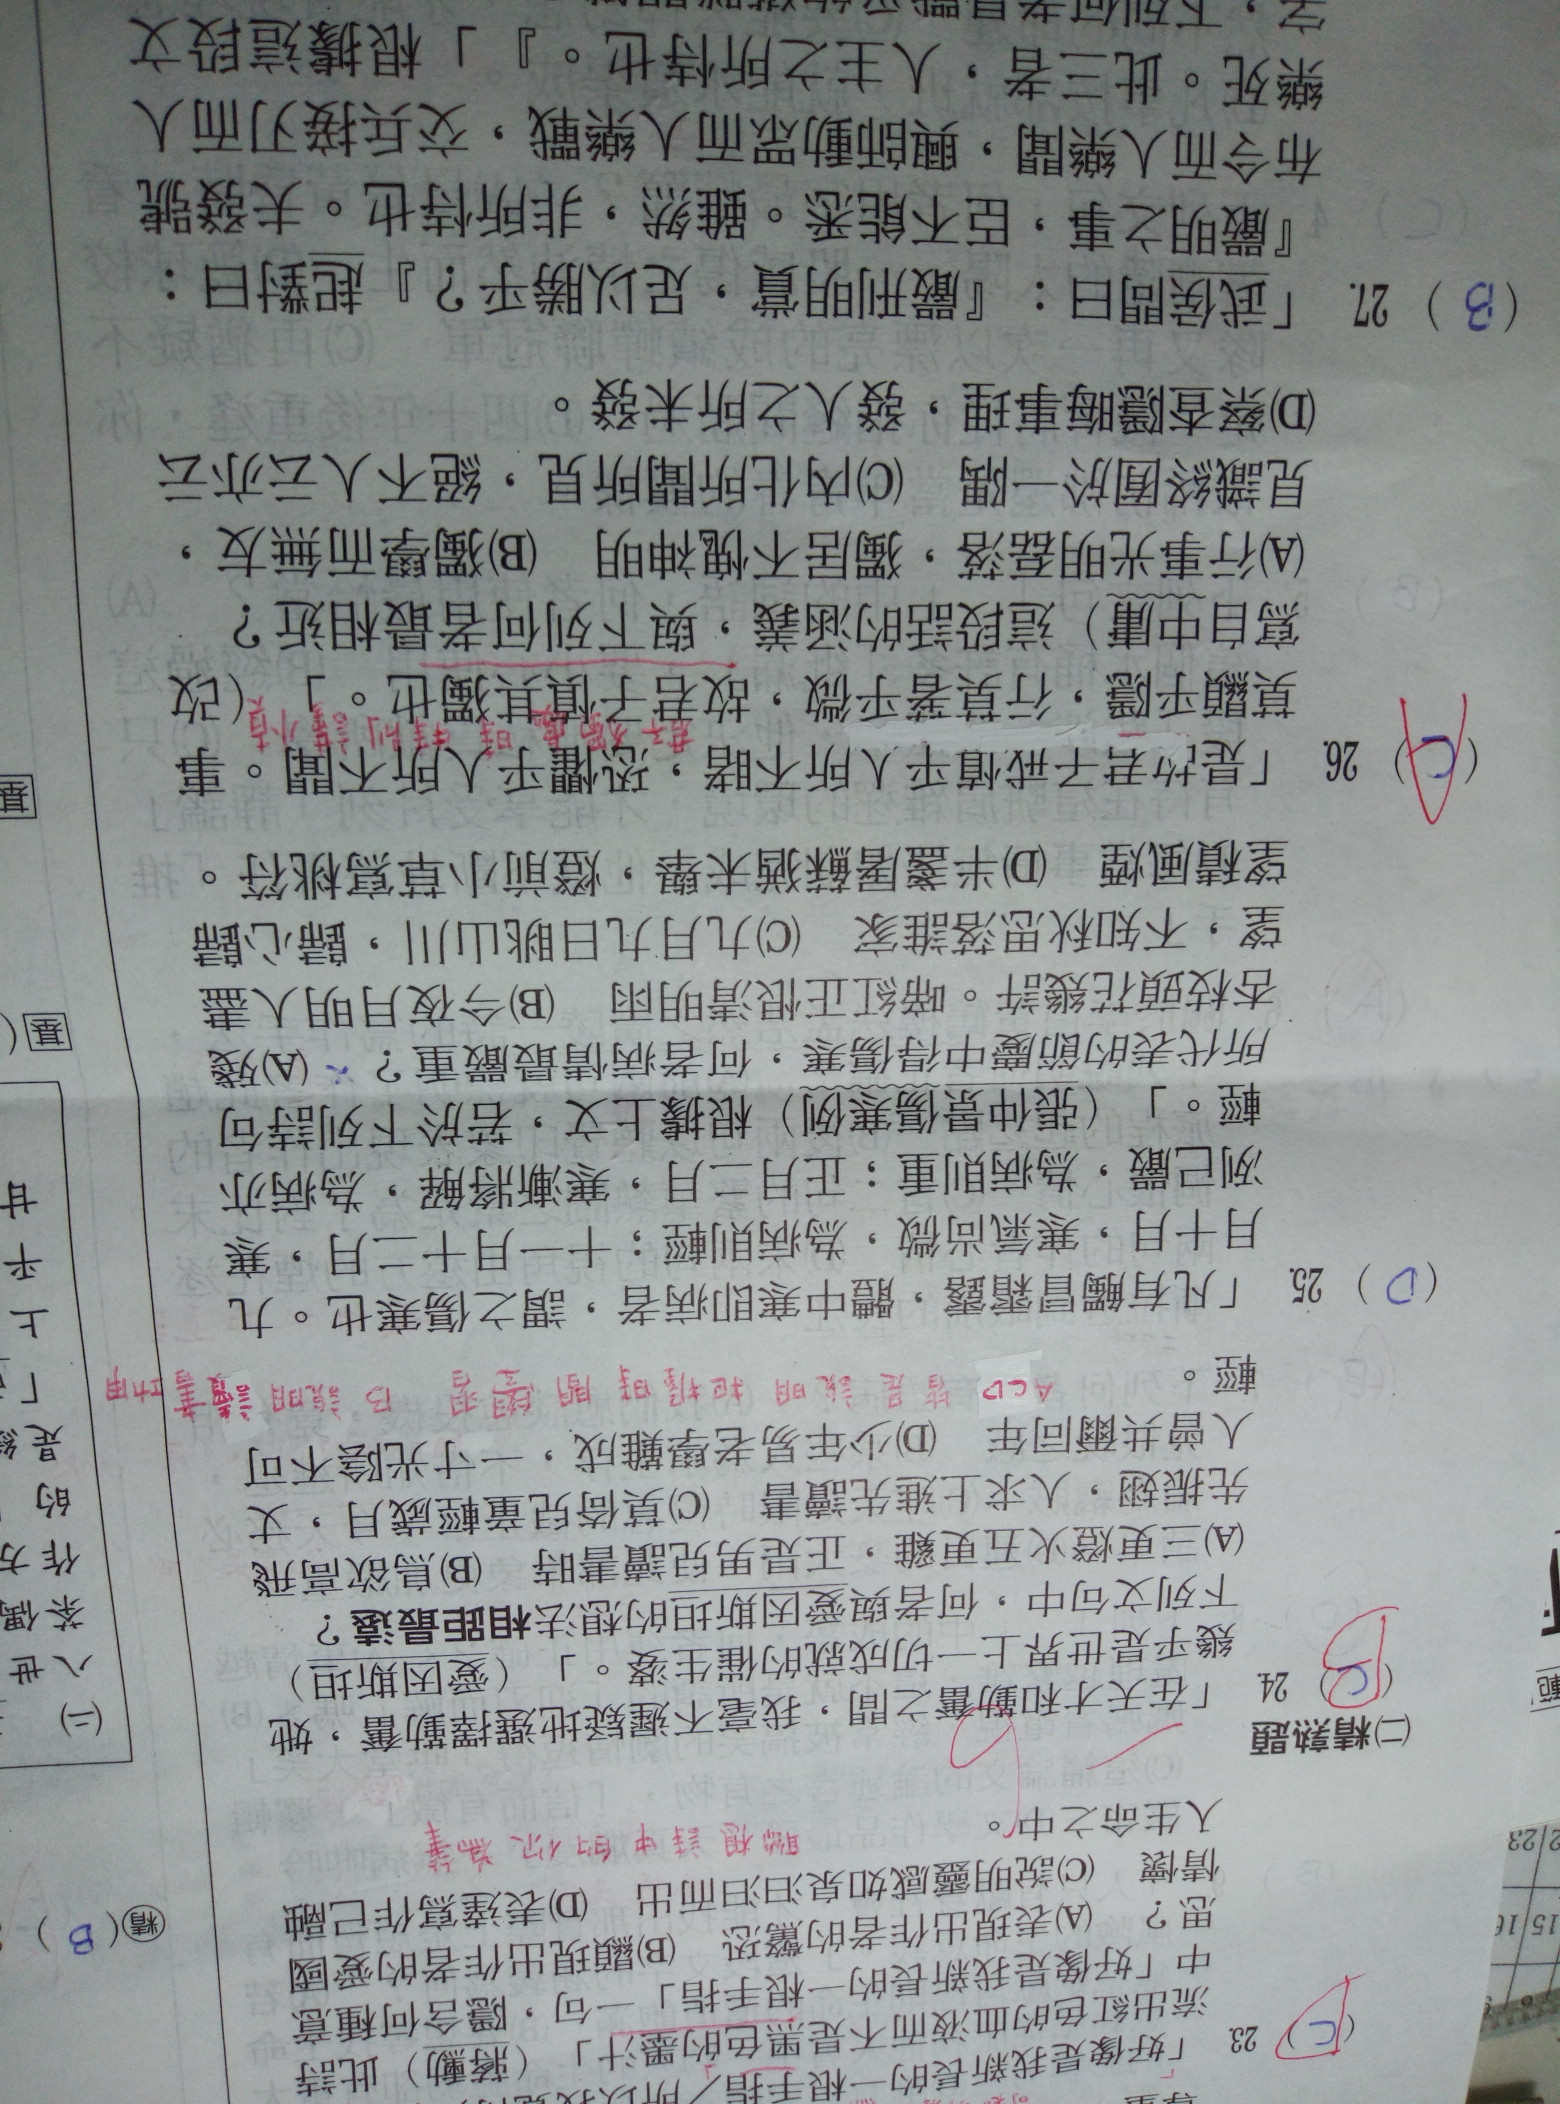 「好像是我新長的一根手指／所以我
流出紅色的血液而不是黑色的墨汁」（蔣勳）此詩
中「好像是我新長的一根手指」一句，隱含何種意
思？ (A)表現出作者的驚恐 (B)顯現出作者的愛國
情懷 (C)說明靈感如泉汩汩而出 (D)表達寫作已融
人生命之中。
聯想詩中的
(C) 23.
㈡精熟題
(C) 24. 「在天才和勤奮之間，我毫不遲疑地選擇勤奮，她
B
幾乎是世界上一切成就的催生婆。」（愛因斯坦）
下列文句中，何者與愛因斯坦的想法相距最遠？
(A)三更燈火五更雞，正是男兒讀書時 (B)鳥欲高飛
先振翅，人求上進先讀書 (C)莫倚兒童輕歲月，丈
人曾共爾同年 (D)少年易老學難成，一寸光陰不可
輕。
ACD 皆是說明把握時間學習 B 說明讀書功用
(D) 25. 「凡有觸冒霜露，體中寒即病者，謂之傷寒也。九
月十月，寒氣尚微，為病則輕；十一月十二月，寒
冽已嚴，為病則重；正月二月，寒漸將解，為病亦
輕。」（張仲景傷寒例）根據上文，若於下列詩句
所代表的節慶中得傷寒，何者病情最嚴重？ (A)殘
杏枝頭花幾許。啼紅正恨清明雨 (B)今夜月明人盡
望，不知秋思落誰家 (C)九月九日眺山川，歸心歸
望積風煙 (D)半盞屠蘇猶未舉，燈前小草寫桃符。
(C) 26. 「是故君子戒慎乎人所不睹，恐懼乎人所不聞。事
A
君子獨處時特別謹慎
莫顯乎隱，行莫著乎微，故君子慎其獨也。」（改
寫自中庸）這段話的涵義，與下列何者最相近？
(A)行事光明磊落，獨居不愧神明 (B)獨學而無友，
見識終囿於一隅 (C)內化所聞所見，絕不人云亦云
(D)察查隱晦事理，發人之所未發。
(B) 27. 「武侯問曰：『嚴刑明賞，足以勝乎？』起對曰：
『嚴明之事，臣不能悉。雖然，非所恃也。夫發號
布令而人樂聞，興師動眾而人樂戰，交兵接刃而人
樂死。此三者，人主之所恃也。』」根據這段文
字，下列何者
㈡
精 (B)
八世
茶偶
作方
的
是
「
上
平
甘
基
基
2/23
15 16